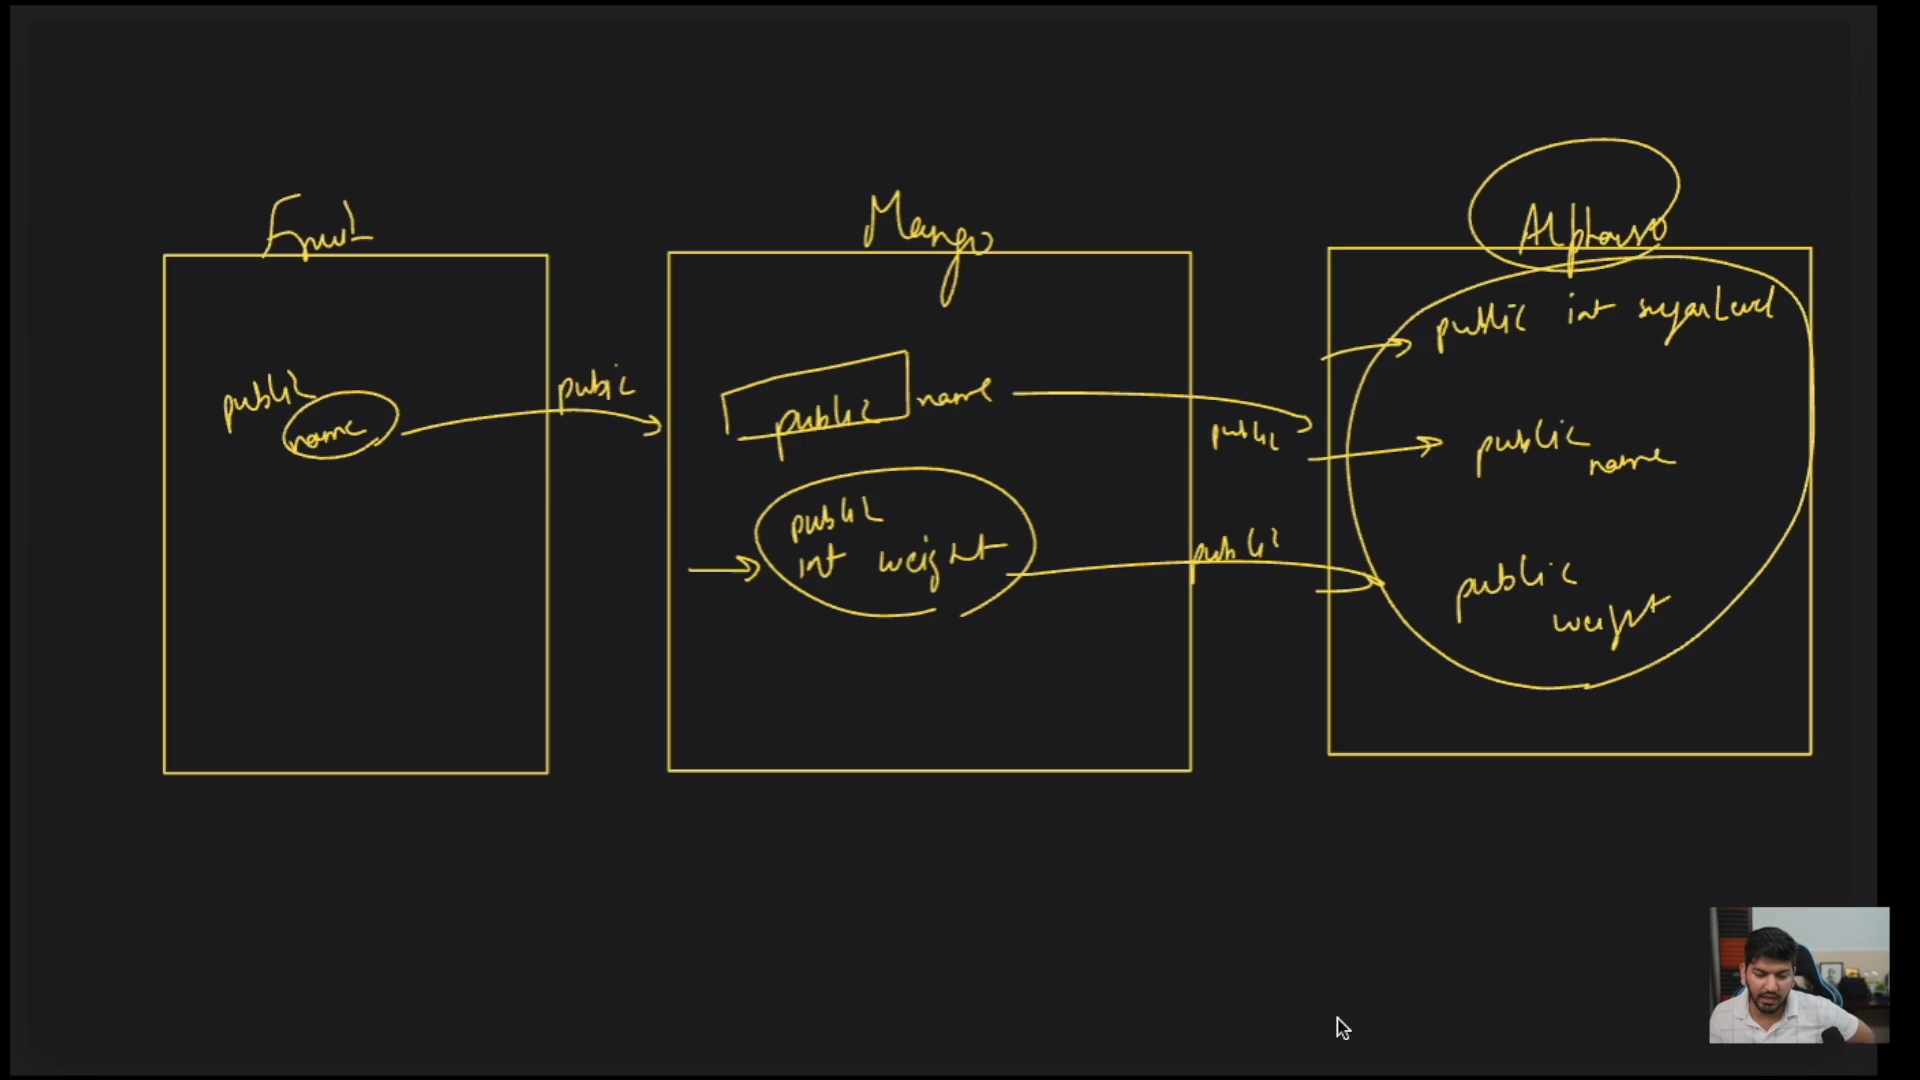 Fruit
public
name
public
Mango
public name
public
int weight
public
public
Alphonso
public int sugarLevel
public
name
public
weight